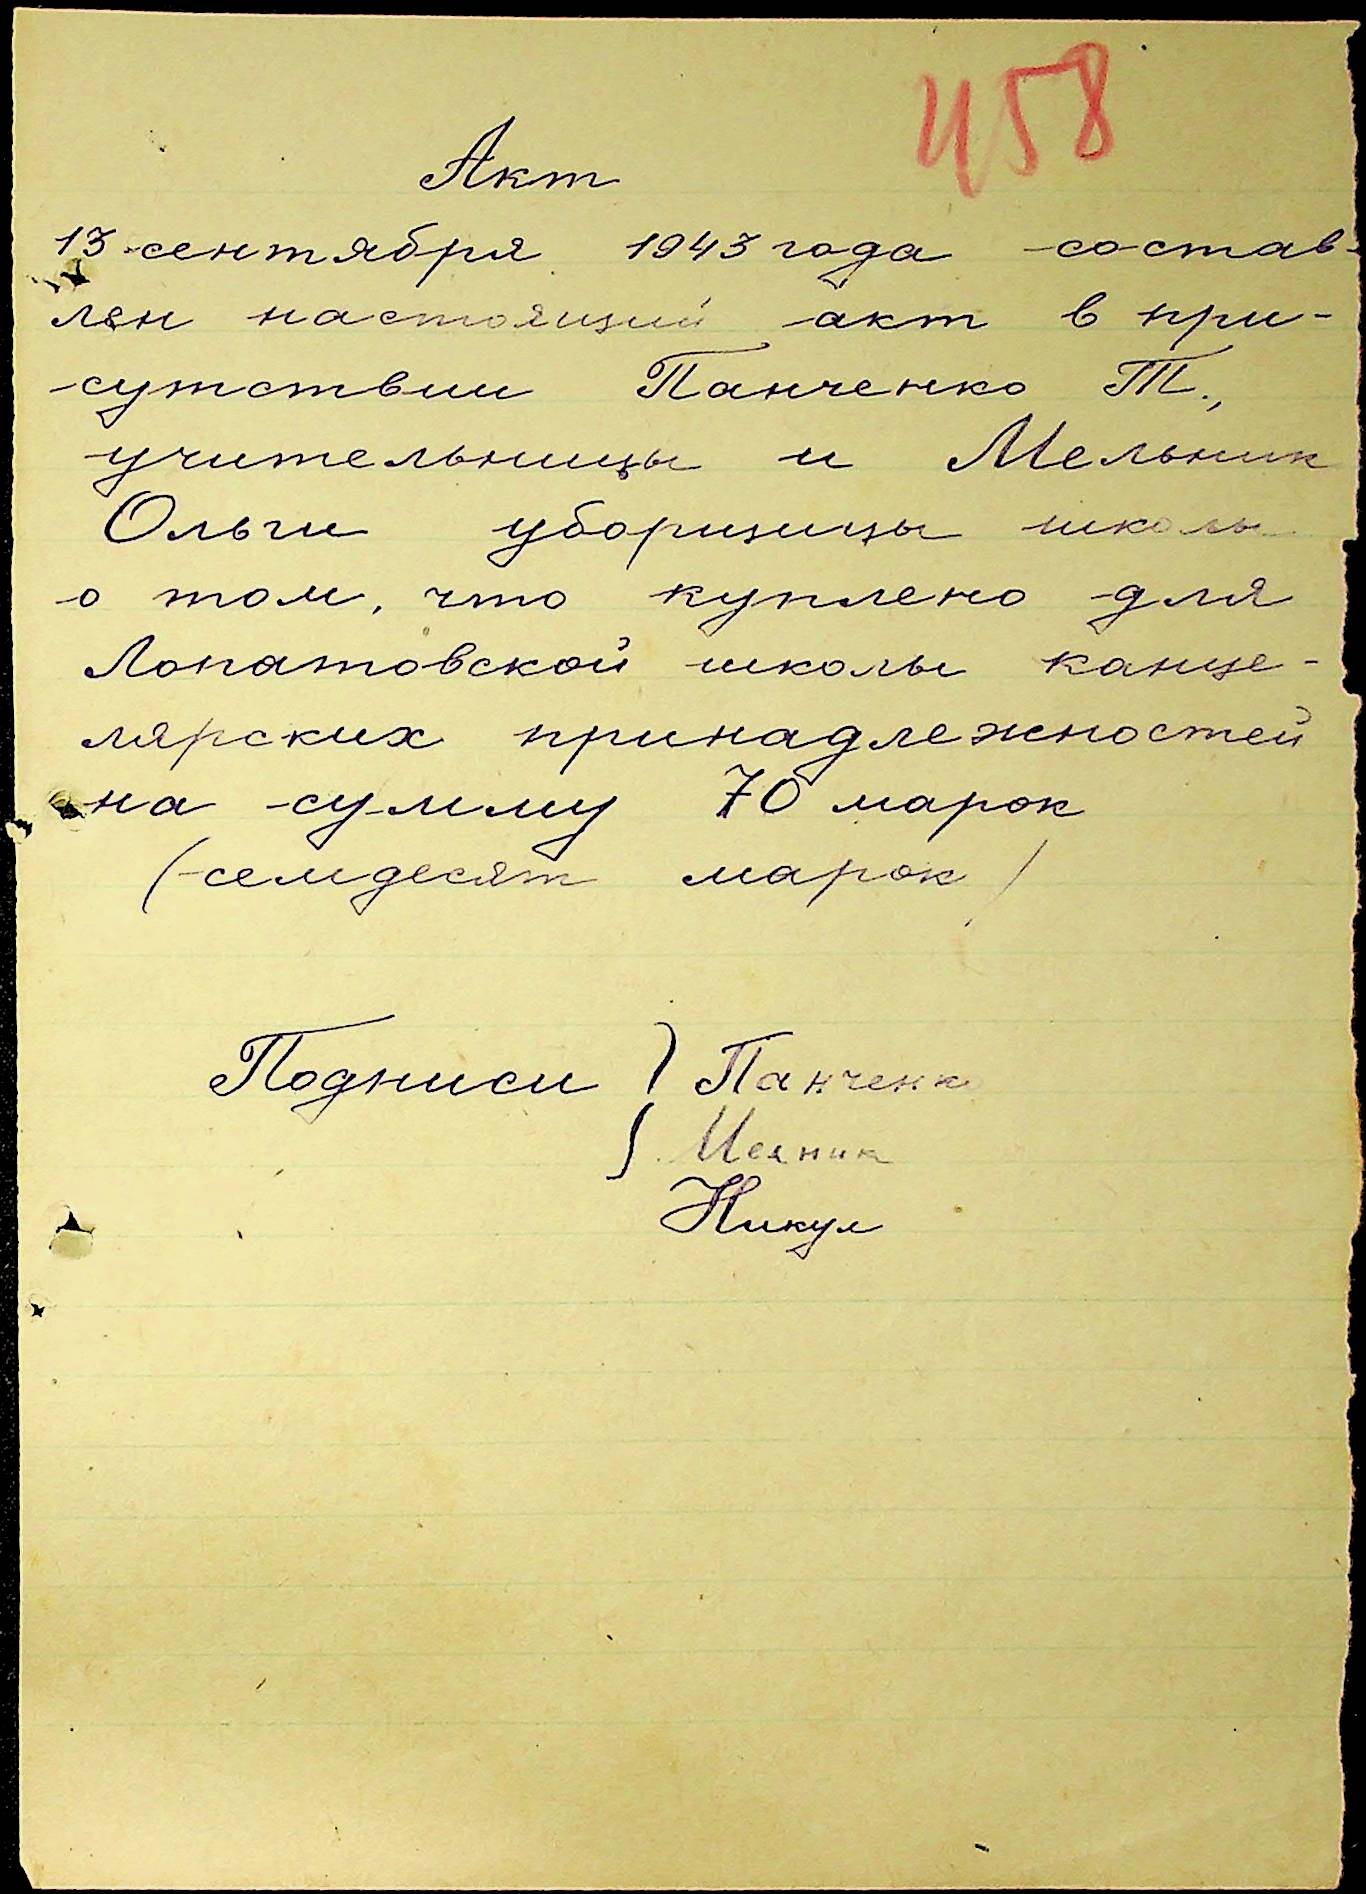 458
Акт
13 сентября 1943 года состав-
лен настоящий акт в при-
сутствии Панченко Т.,
учительницы и Мельник
Ольги уборщицы школы
о том, что куплено для
Лопатовской школы канце-
лярских принадлежностей
на сумму 70 марок
(семдесят марок)
Подписи } Панченко
Мелник
Никул